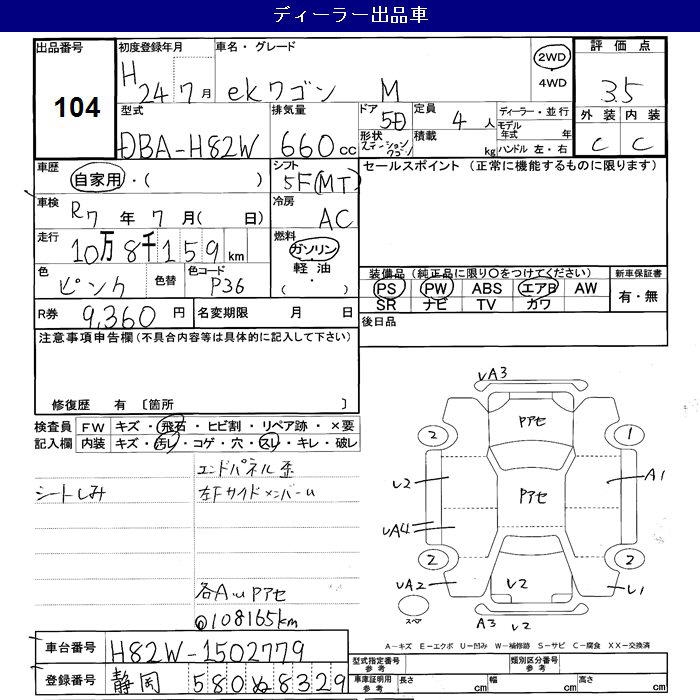 ディーラー出品車
出品番号 104
初度登録年月 H 24 7月
車名・グレード ekワゴン M
2WD
4WD
評価点 3.5
外装 C 内装 C
型式 DBA-H82W
排気量 660cc
ドア 5D
形状 ステーションワゴン
定員 4人
積載 kg
ディーラー・並行
モデル年式 年
ハンドル 左・右
車歴 自家用・( )
シフト 5F(MT)
セールスポイント (正常に機能するものに限ります)
車検 R7年 7月( 日)
冷房 AC
走行 10万8千159km
燃料 ガソリン
軽油
( ・ )
色 ピンク 色替 色コード P36
装備品(純正品に限り○をつけてください)
PS PW ABS エアB AW
SR ナビ TV カワ
新車保証書
有・無
R券 9,360円 名変期限 月 日
後日品
注意事項申告欄(不具合内容等は具体的に記入して下さい)
修復歴 有 〔箇所
検査員記入欄
FW キズ・飛石・ヒビ割・リペア跡・×要
内装 キズ・汚レ・コゲ・穴・スレ・キレ・破レ
エンドパネル歪
シートしみ
左Fサイドメンバーu
各AuPアセ
@108165km
UA3
Pアセ
2 1
U2 Pアセ A1
UA4
2 2
UA2 U2 U1
スペア
A3 U2
A-キズ E-エクボ U-凹み W-補修跡 S-サビ C-腐食 XX-交換済
車台番号 H82W-1502779
登録番号 静岡 580ぬ8329
型式指定番号 参考
類別区分番号 参考
自動車検査証 参考
長さ cm 幅 cm 高さ cm